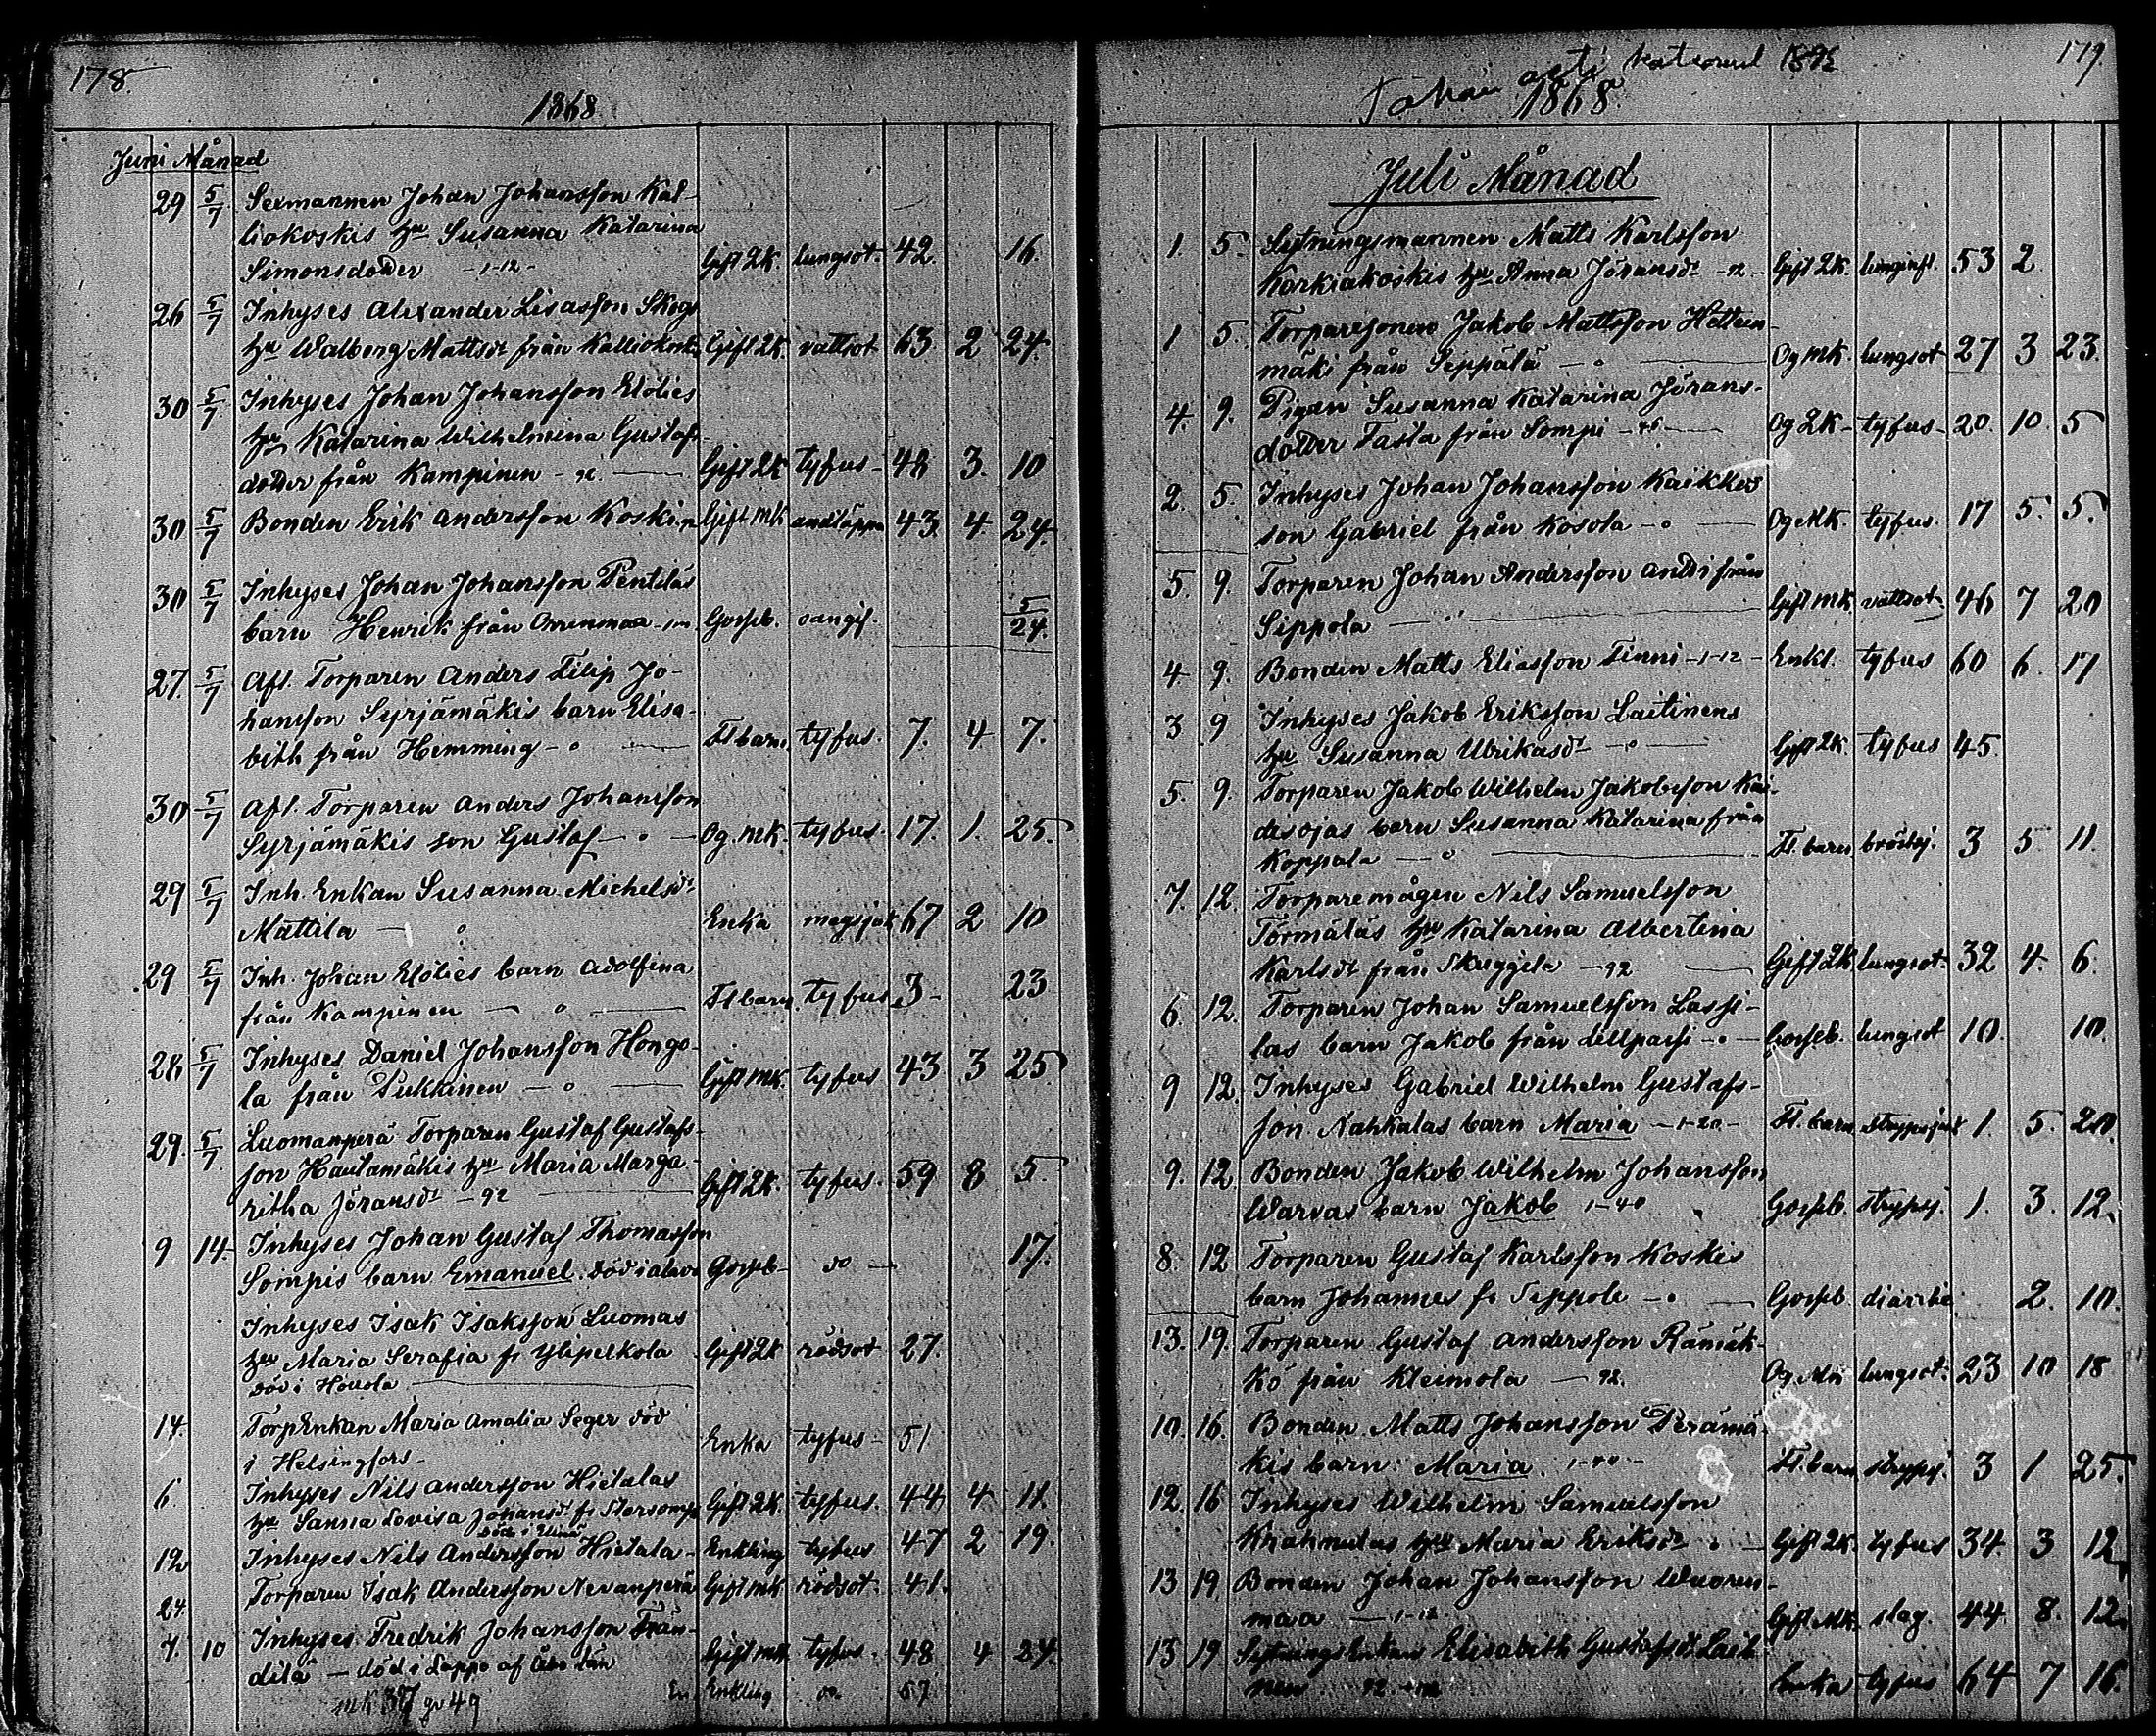 178.
1868
Juni Månad
29 5/7 Sexmannen Johan Johansson Kal-
liokoskis hu Susanna Katarina
Simonsdotter -1-12- Gift Qk. lungsot. 42. 16.
26 5/7 Inhyses Alexander Lisasson Skogs
hu Walborg Mattsdr från Kalliokoski Gift Qk. vattsot 63 2 24.
30 5/7 Inhyses Johan Johansson
hu Katarina Wilhelmina Gustafs-
dotter från Kampinen - 92. Gift Qk tyfus - 48 3. 10
30 5/7 Bonden Erik Andersson Koski Gift Mk andtäppa 43. 4. 24.
30 5/7 Inhyses Johan Johansson Penttiläs
barn Henrik från Orrenmaa Gossb. oangif. 5/24.
27. 5/7 Afl. Torparen Anders Filip Jo-
hansson Syrjämäkis barn Elisa-
beth från Hemming - o Fl barn. tyfus. 7. 4 7.
30 5/7 Afl. Torparen Anders Johansson
Syrjämäkis son Gustaf - o - Og. Mk. tyfus. 17. 1. 25.
29 5/7 Inh. Enkan Susanna Michelsdr
Mattila - o Enka magsjuk 67 2 10
29 5/7 Inh. Johan barn Adolfina
från Kampinen - o Fl barn. tyfus 3- 23
28 5/7 Inhyses Daniel Johansson Hongo-
la från Pukkinen - o Gift Mk. tyfus 43 3 25
29. 5/7 Luomanperä Torparen Gustaf Gustafs-
son Hautamäkis hu Maria Marga-
retha Jöransdr - 92 Gift Qk. tyfus. 59 8 5.
9 14. Inhyses Johan Gustaf Thomasson
Sompis barn Emanuel. död i Alavo Gossb - do - 17.
Inhyses Isak Isaksson Luomas
hu Maria Serafia fr Ylipelkola Gift Qk rödsot 27.
död i Houola
14. TorpEnkan Maria Amalia Seger död
i Helsingfors - Enka tyfus - 51
6. Inhyses Nils Andersson Hietalas
hu Sanna Lovisa Johansdr fr Gift Qk. tyfus. 44 4 11.
död i Elimä
12 Inhyses Nils Andersson Hietala - Enkling tyfus 47 2 19.
24. Torparen Isak Andersson Nevanperä Gift Mk rödsot. 41.
7. 10 Inhyses Fredrik Johansson Frän-
dilä - död i Lappo af Åbo län Gift Mk tyfus. 48 4 24.
Mk 37 qv 49 Enkling do 57
179.
1868.
Juli Månad
1. 5. Sytningsmannen Matts Karlsson
Korkiakoskis hu Anna Jöransdr - 92 - Gift Qk. lunginfl. 53 2
1 5. Torparesonen Jakob Mattsson
mäki från Seppälä - o Og Mk. lungsot 27 3 23.
4. 9. Pigan Susanna Katarina Jörans-
dotter Tasta från Sompi Og Qk - tyfus - 20. 10. 5
2. 5. Inhyses Johan Johansson Kaikkos
son Gabriel från Kosola - o Og Mk. tyfus. 17 5. 5.
5. 9. Torparen Johan Andersson Antti från
Sippola - Gift Mk. vattsot. 46 7 20
4 9. Bonden Matts Eliasson Finni -1-12- Enkl. tyfus 60 6. 17
3 9 Inhyses Jakob Eriksson Laitinens
hu Susanna Ulrikasdr - o - Gift Qk. tyfus 45.
5. 9. Torparen Jakob Wilhelm Jakobsson Kai-
desojas barn Susanna Katarina från
Koppala - o Fl. barn bröstsj. 3 5. 11.
7. 12. Torparemågen Nils Samuelsson
Törmäläs hu Katarina Albertina
Karlsdr från Skuggila - 92 Gift Qk. lungsot. 32 4. 6.
6. 12. Torparen Johan Samuelsson Lassi-
las barn Jakob från - o - Gossb. lungsot 10. 10.
9 12. Inhyses Gabriel Wilhelm Gustafs-
son Nahkalas barn Maria -1-20- Fl. barn strypsjuk 1. 5. 20.
9. 12 Bonden Jakob Wilhelm Johansson
Warvas barn Jakob 1-40 Gossb. strypsj. 1. 3. 12.
8. 12 Torparen Gustaf Karlsson Koskis
barn Johannes fr Seppola - o Gossb. diarrhe 2. 10.
13. 19. Torparen Gustaf Andersson Rämäk-
kö från Kleimola - 92. Og Mk lungsot. 23 10 18
10. 16. Bonden Matts Johansson Perämä-
kis barn Maria. Fl. barn strypsj. 3 1 25.
12. 16 Inhyses Wilhelm Samuelsson
hu Maria Eriksdr - o - Gift Qk. tyfus 34. 3 12
13 19 Bonden Johan Johansson Wuoren-
maa -1-12 Gift Mk. slag. 44. 8. 12.
13 19 SytningsEnkan Elisabeth Gustafsdr Lait
nen 92. Enka tyfus 64 7 16.